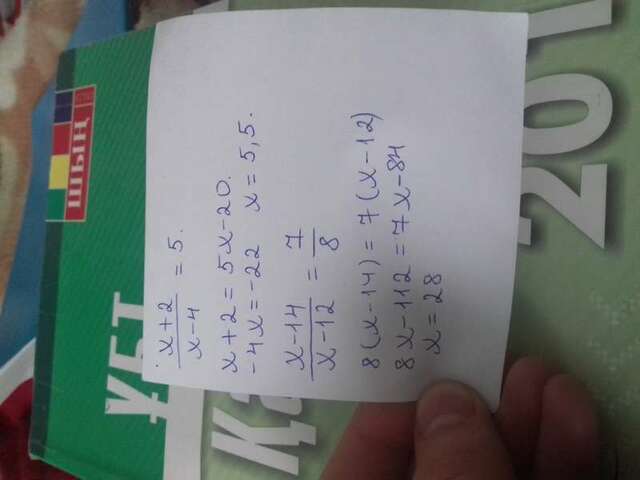 ШЫҢ
ҰБТ
Қа
x+2 / x-4 = 5.
x+2 = 5x-20.
-4x = -22 x = 5,5.
x-14 / x-12 = 7 / 8
8(x-14) = 7(x-12)
8x-112 = 7x-84
x = 28
201